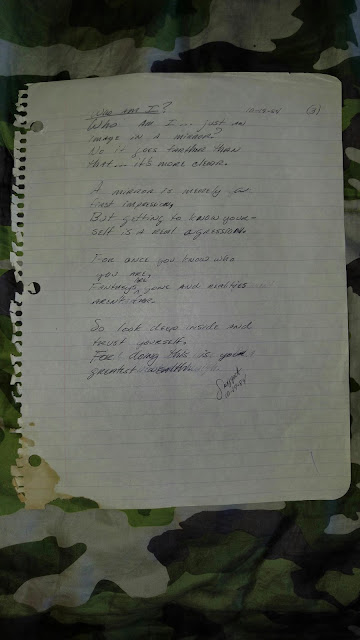 Who am I? 10-19-84 (3)
Who am I... just an
image in a mirror?
No it goes farther than
that... it's more clear.
A mirror is merely a
first impression,
But getting to know your-
self is a real agression.
For once you know who
you are,
are
Fantasys gone and realities
aren't far.
So look deep inside and
trust yourself,
For doing this is your
greatest wealth.
10-19-84